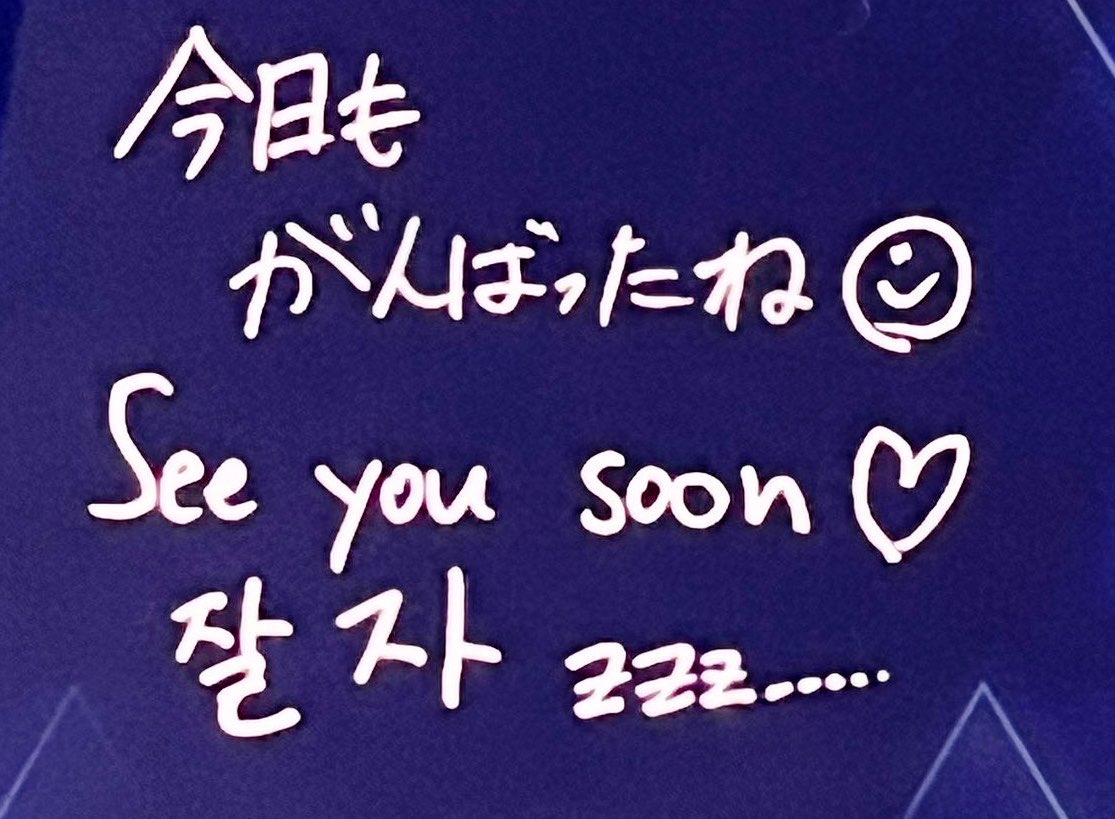 今日も
がんばったね
See you soon
잘 자 zzz......